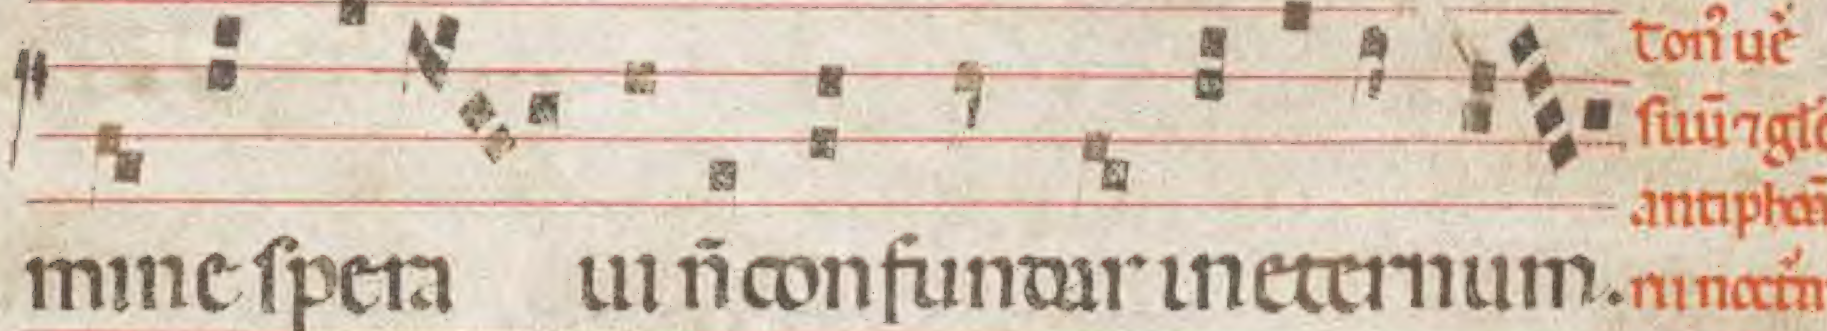 mine spera ui n̄ confundar in eternum.
ton᷒ ue᷒
suū ⁊ gl'
antiphoā
ni noctū